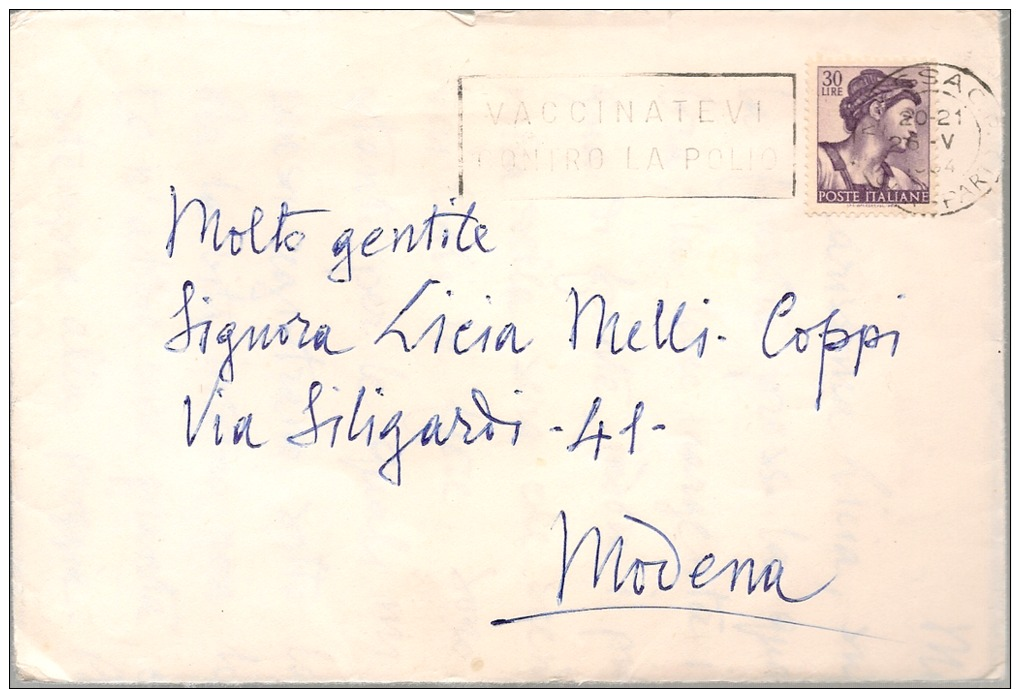 VACCINATEVI
CONTRO LA POLIO
30
LIRE
20-21
26-V
POSTE ITALIANE
Molto gentile
Signora Licia Melli-Coppi
Via Siligardi -41-
Mòdena